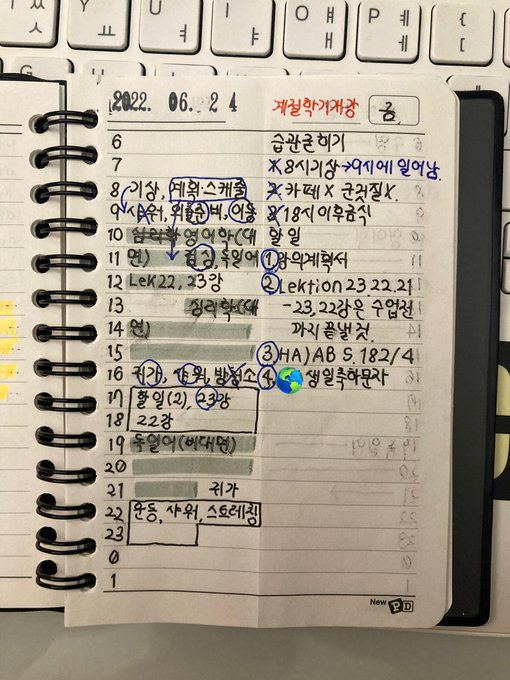 2022. 06. 24
계절학기개강 금
6
7
8 기상, 계획스케줄
9 샤워, 외출준비, 이동
10 심리학 영어학(대
11 면) 점심, 독일어
12 Lek22, 23강
13 심리학(대
14 면)
15
16 귀가, 샤워, 방청소
17 할일(2), 23강
18 22강
19 독일어(비대면)
20
21 귀가
22 운동, 샤워, 스트레칭
23
0
1
습관굳히기
X 8시기상→9시에 일어남.
X 카페X 군것질X.
X 18시이후금식
할 일
① 강의계획서
② Lektion 23.22.21
-23,22강은 수업전
까지 끝낼것.
③ HA) AB S. 182/4
④ 생일축하문자
New PD
U
I
ㅑ
O
ㅐ
ㅒ
P
ㅔ
ㅖ
{
[